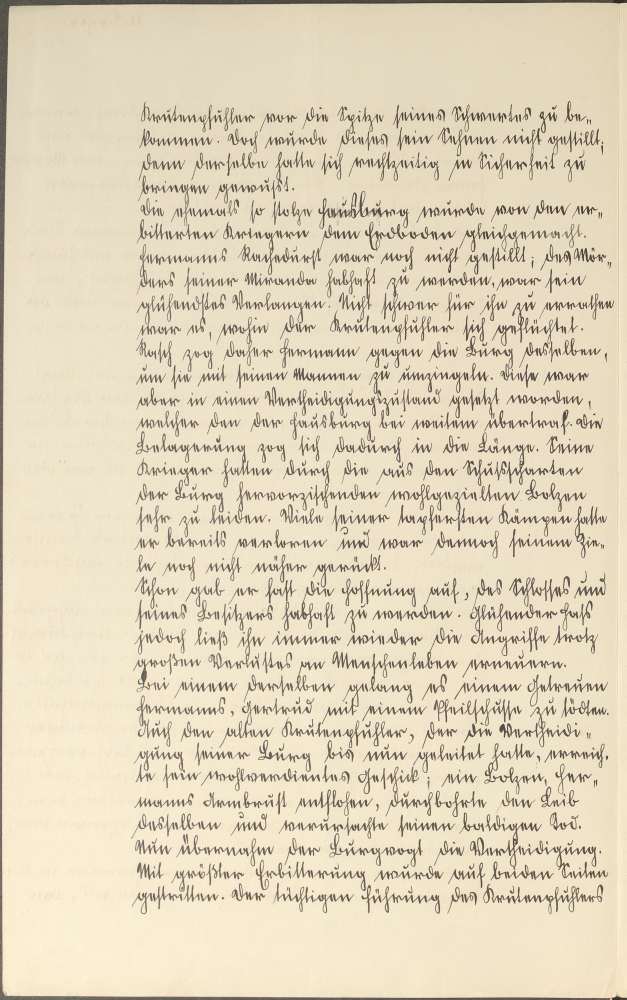 Krutenpfuhler vor die Spitze seines Schwertes zu be-
kommen. Doch wurde dieses sein Sehnen nicht gestillt,
denn derselbe hatte sich rechtzeitig in Sicherheit zu
bringen gewußt.
Die ehemals so stolze Hausburg wurde von den er-
bitterten Kriegern dem Erdboden gleichgemacht.
Hermanns Rachedurst war noch nicht gestillt; des Mör-
ders seiner Miranda habhaft zu werden, war sein
glühendstes Verlangen. Nicht schwer für ihn zu errathen
war es, wohin der Krutenpfuhler sich geflüchtet.
Rasch zog daher Hermann gegen die Burg desselben,
um sie mit seinen Mannen zu umzingeln. Diese war
aber in einen Vertheidigungszustand gesetzt worden,
welcher den der Hausburg bei weitem übertraf. Die
Belagerung zog sich dadurch in die Länge. Seine
Krieger hatten durch die aus den Schußscharten
der Burg hervorzischenden wohlgezielten Bolzen
sehr zu leiden. Viele seiner tapfersten Kämpen hatte
er bereits verloren und war dennoch seinem Zie-
le noch nicht näher gerückt.
Schon gab er fast die Hoffnung auf, des Schlosses und
seines Besitzers habhaft zu werden. Glühender Haß
jedoch ließ ihn immer wieder die Angriffe trotz
großen Verlustes an Menschenleben erneuern.
Bei einem derselben gelang es einem Getreuen
Hermanns, Gertrud mit einem Pfeilschusse zu tödten.
Auch den alten Krutenpfuhler, der die Vertheidi-
gung seiner Burg bis nun geleitet hatte, erreich-
te sein wohlverdientes Geschick; ein Bolzen, Her-
manns Armbrust entflohen, durchbohrte den Leib
desselben und verursachte seinen baldigen Tod.
Nun übernahm der Burgvogt die Vertheidigung.
Mit größter Erbitterung wurde auf beiden Seiten
gestritten. Der tüchtigen Führung des Krutenpfuhlers